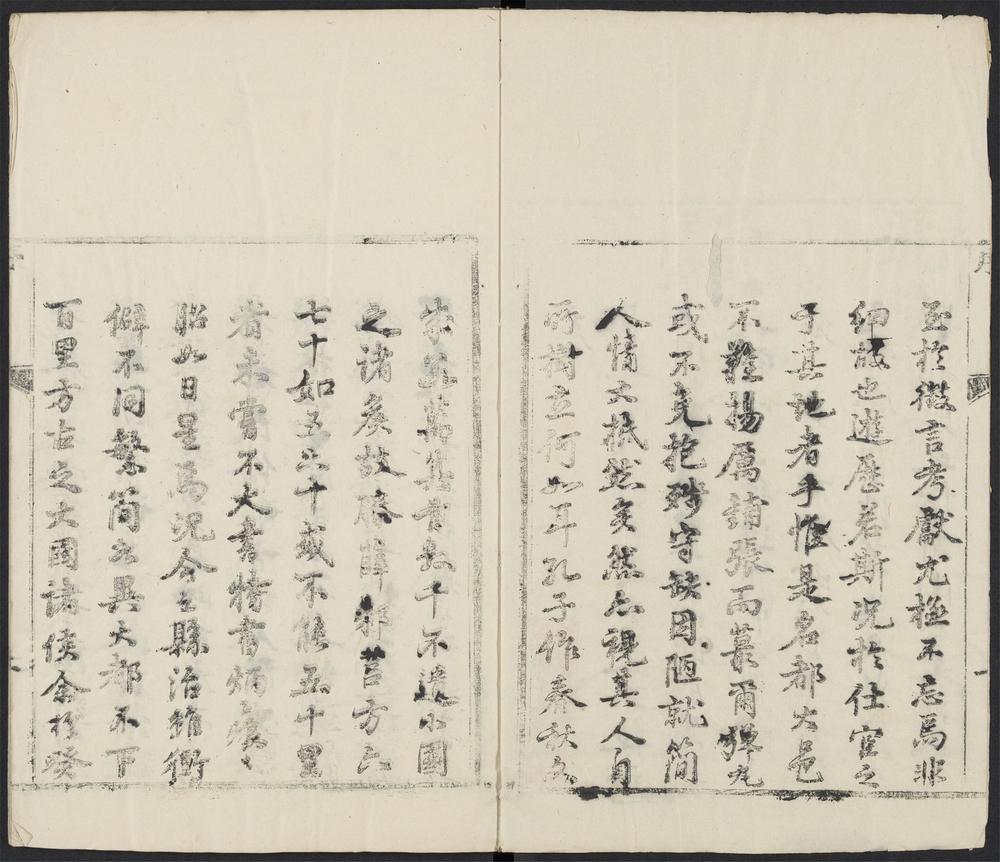 至於徵言考獻尤極不忘焉非
細故也遊歷若斯況於仕宦之
于其地者乎惟是名都大邑
不難揚厲鋪張而蕞爾彈丸
或不免抱殘守缺因陋就簡
人情大抵然矣然亦視其人自
所樹立何如耳孔子作春秋
其書數千不遺小國
之諸矦故滕薛邾莒方六
七十如五六十或不能五十里
者未嘗不大書特書炳
昭如日星焉況今之縣治雖衝
僻不同繁簡各異大都不下
百里方古之大國諸侯余於癸
序
一